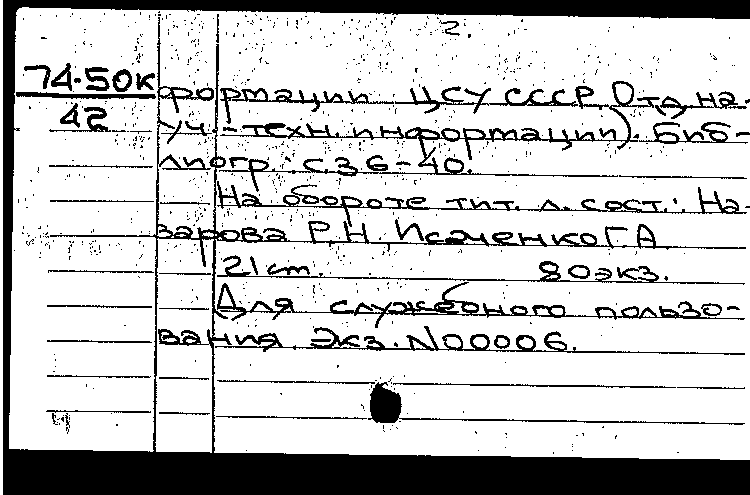 2.
74-50к
42
формации ЦСУ СССР. Отд. на-
уч.-техн. информации). Биб-
лиогр. с. 36-40.
На обороте тит. л. сост.: На-
зарова Р.Н., Исаченко Г.А.
21 см. 80 экз.
Для служебного пользо-
вания. Экз. N00006.